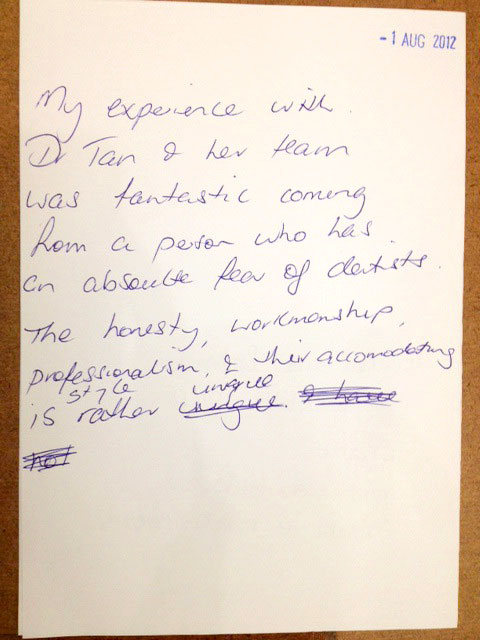 -1 AUG 2012
My experience with
Dr Tan & her team
was fantastic coming
from a person who has
an absoulte fear of dentists.
The honesty, workmonship,
professionalism, & their accomodating
style unqiue
is rather unqiue. & have
not